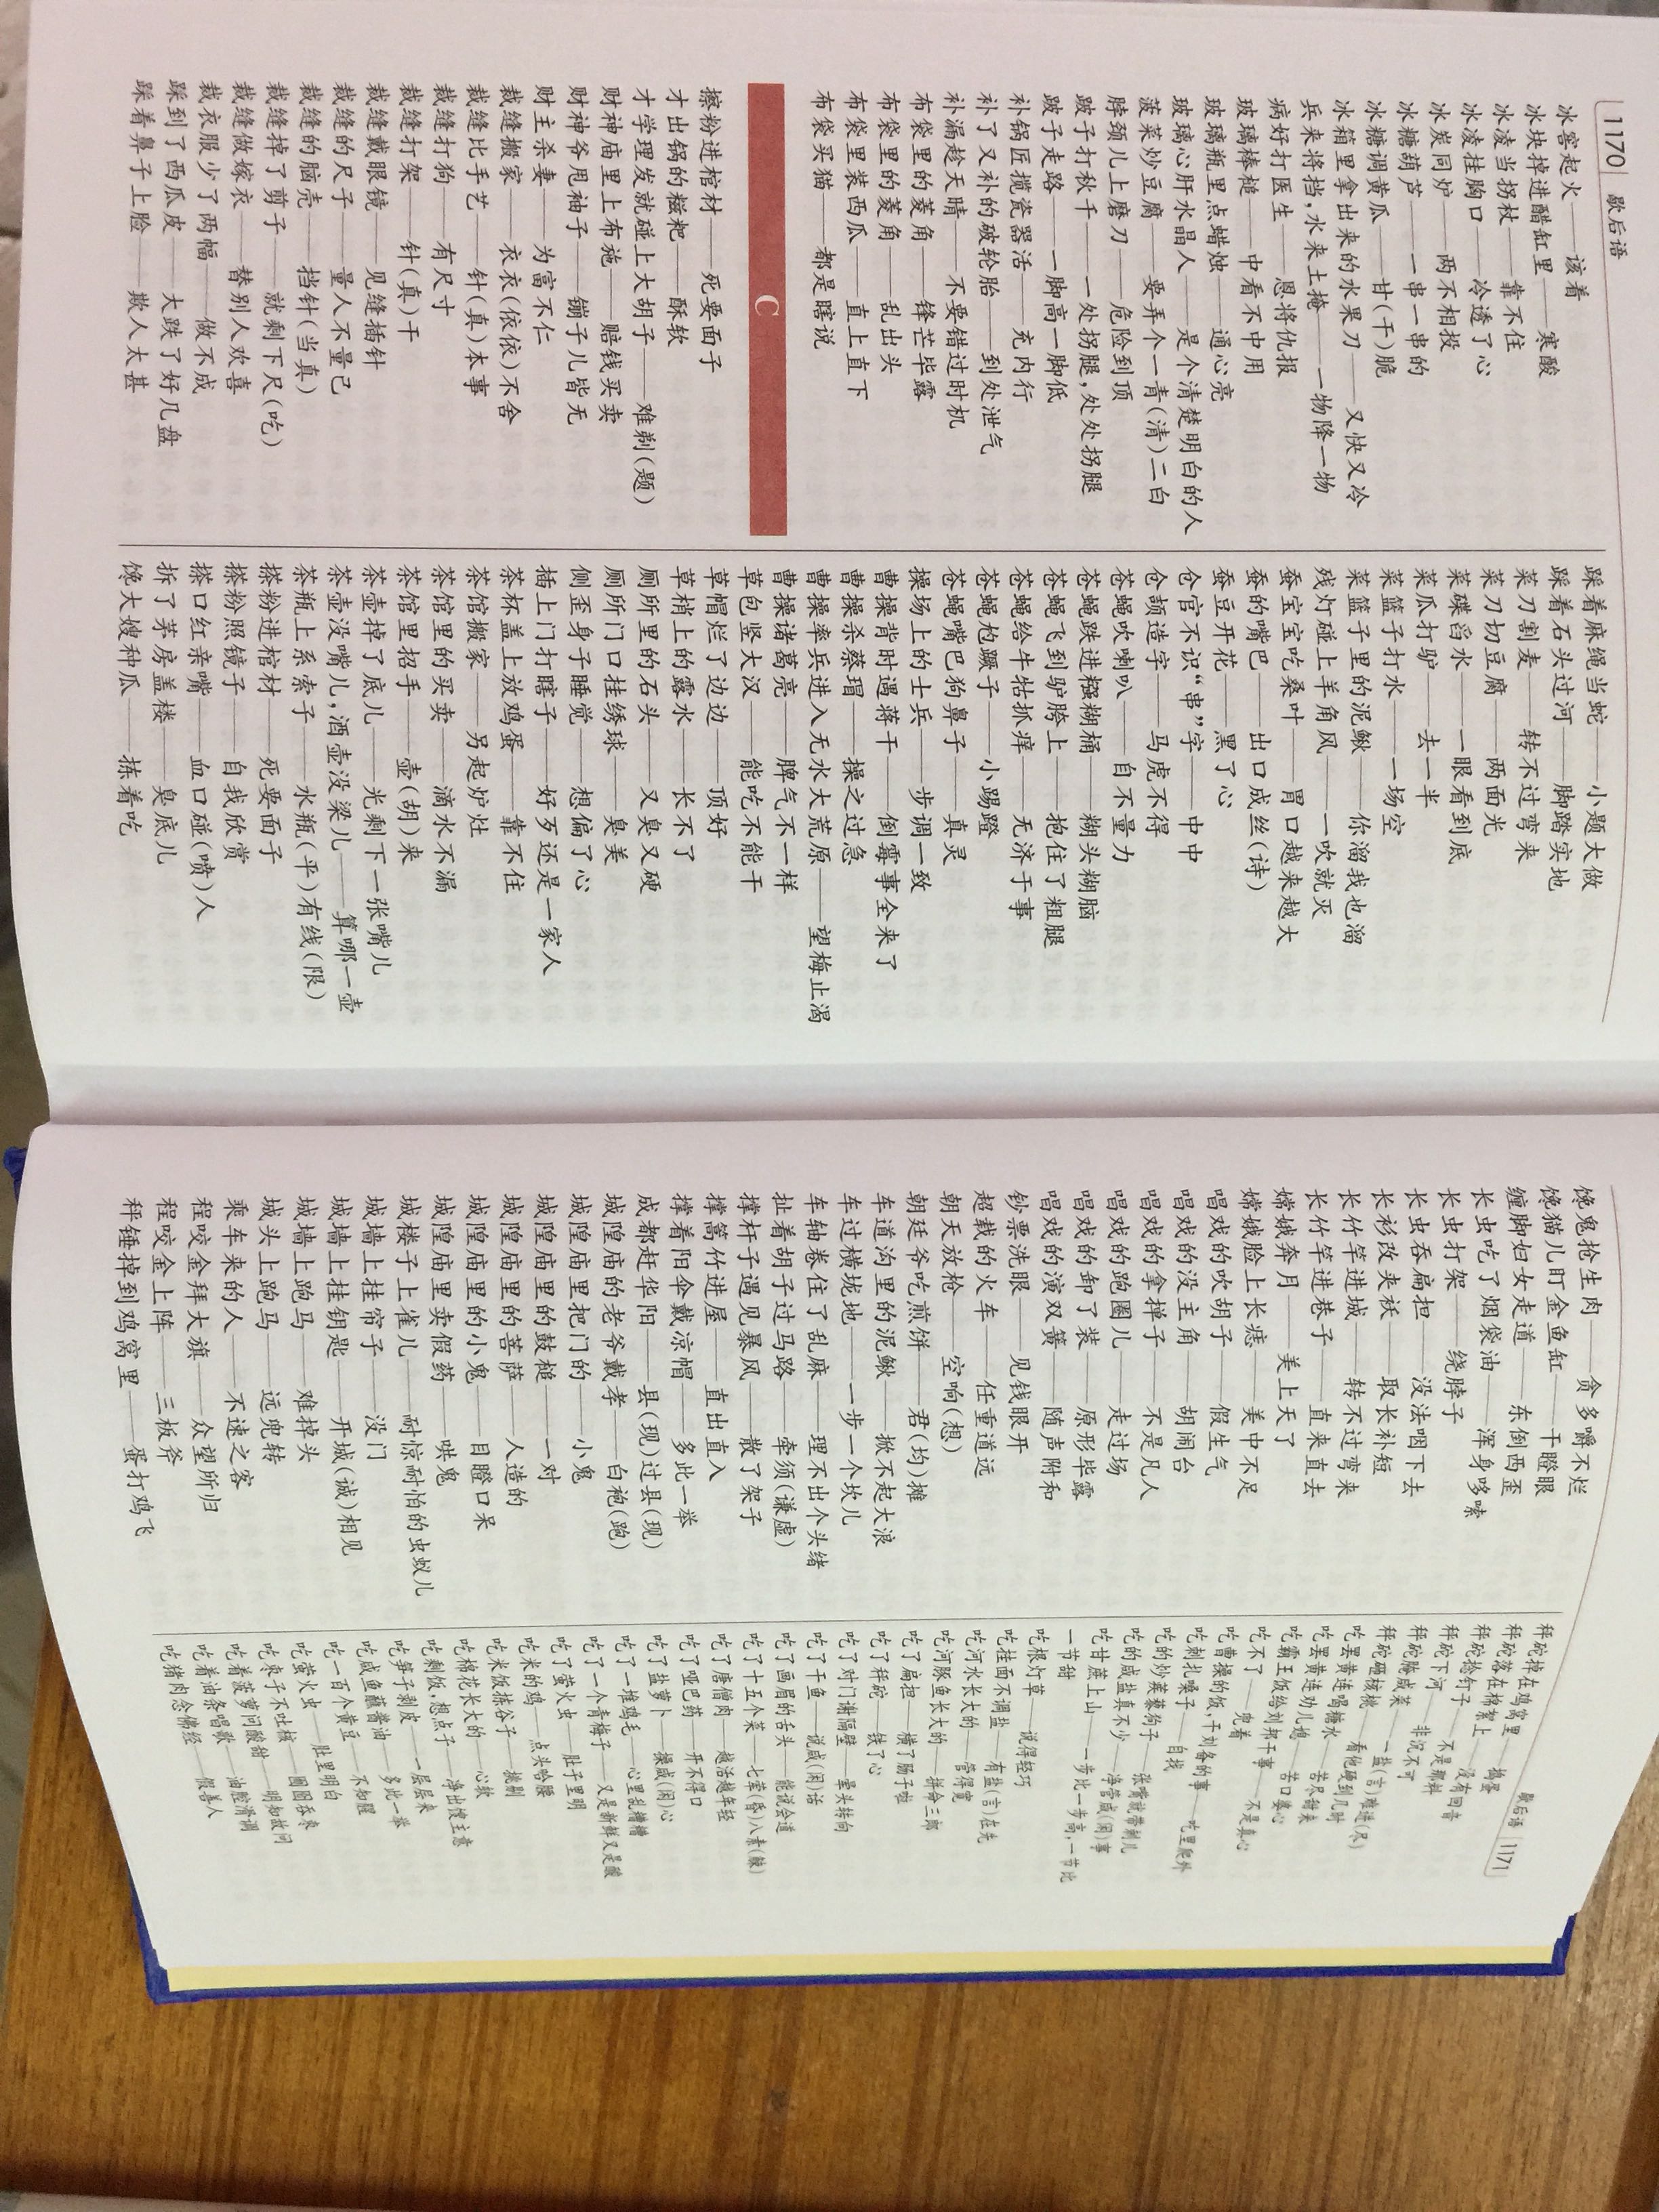 1170 歇后语
冰窖起火——该着
冰块掉进醋缸里——寒酸
冰凌当拐杖——靠不住
冰凌挂胸口——冷透了心
冰炭同炉——两不相投
冰糖葫芦——一串一串的
冰糖调黄瓜——甘(干)脆
冰箱里拿出来的水果刀——又快又冷
兵来将挡,水来土掩——一物降一物
病好打医生——恩将仇报
玻璃棒槌——中看不中用
玻璃瓶里点蜡烛——通心亮
玻璃心肝水晶人——是个清楚明白的人
菠菜炒豆腐——要弄个一青(清)二白
脖颈儿上磨刀——危险到顶
跛子打秋千——一处拐腿,处处拐腿
跛子走路——一脚高一脚低
补锅匠揽瓷器活——充内行
补了又补的破轮胎——到处泄气
补漏趁天晴——不要错过时机
布袋里的菱角——锋芒毕露
布袋里的菱角——乱出头
布袋里装西瓜——直上直下
布袋买猫——都是瞎说
C
擦粉进棺材——死要面子
才出锅的糍粑——酥软
才学理发就碰上大胡子——难剃(题)
财神庙里上布施——赔钱买卖
财神爷甩袖子——镚子儿皆无
财主杀妻——为富不仁
裁缝搬家——衣衣(依依)不舍
裁缝比手艺——针(真)本事
裁缝打狗——有尺寸
裁缝打架——针(真)干
裁缝戴眼镜——见缝插针
裁缝的尺子——量人不量己
裁缝的脑壳——挡针(当真)
裁缝掉了剪子——就剩下尺(吃)
裁缝做嫁衣——替别人欢喜
裁衣服少了两幅——做不成
踩到了西瓜皮——大跌了好几盘
踩着鼻子上脸——欺人太甚
踩着麻绳当蛇——小题大做
踩着石头过河——脚踏实地
菜刀割麦——转不过弯来
菜刀切豆腐——两面光
菜碟舀水——一眼看到底
菜瓜打驴——去一半
菜篮子打水——一场空
菜篮子里的泥鳅——你溜我也溜
残灯碰上羊角风——一吹就灭
蚕宝宝吃桑叶——胃口越来越大
蚕的嘴巴——出口成丝(诗)
蚕豆开花——黑了心
仓官不识“串”字——中中
仓颉造字——马虎不得
苍蝇吹喇叭——自不量力
苍蝇跌进糨糊桶——糊头糊脑
苍蝇飞到驴胯上——抱住了粗腿
苍蝇给牛牯抓痒——无济于事
苍蝇尥蹶子——小踢蹬
苍蝇嘴巴狗鼻子——真灵
操场上的士兵——步调一致
曹操背时遇蒋干——倒霉事全来了
曹操杀蔡瑁——操之过急
曹操率兵进入无水大荒原——望梅止渴
曹操诸葛亮——脾气不一样
草包竖大汉——能吃不能干
草帽烂了边边——顶好
草梢上的露水——长不了
厕所里的石头——又臭又硬
厕所门口挂绣球——臭美
侧歪身子睡觉——想偏了心
插上门打瞎子——好歹还是一家人
茶杯盖上放鸡蛋——靠不住
茶馆搬家——另起炉灶
茶馆里的买卖——滴水不漏
茶馆里招手——壶(胡)来
茶壶掉了底儿——光剩下一张嘴儿
茶壶没嘴儿,酒壶没梁儿——算哪一壶
茶瓶上系索子——水瓶(乎)有线(限)
搽粉进棺材——死要面子
搽粉照镜子——自我欣赏
搽口红亲嘴——血口碰(喷)人
拆了茅房盖楼——臭底儿
馋大嫂种瓜——拣着吃
歇后语 1171
馋鬼抢生肉——贪多嚼不烂
馋猫儿盯金鱼缸——干瞪眼
缠脚妇女走道——东倒西歪
长虫吃了烟袋油——浑身哆嗦
长虫打架——绕脖子
长虫吞扁担——没法咽下去
长衫改夹袄——取长补短
长竹竿进城——转不过弯来
长竹竿进巷子——直来直去
嫦娥奔月——美上天了
嫦娥脸上长痣——美中不足
唱戏的吹胡子——假生气
唱戏的没主角——胡闹台
唱戏的拿掸子——不是凡人
唱戏的跑圈儿——走过场
唱戏的卸了装——原形毕露
唱戏的演双簧——随声附和
钞票洗眼——见钱眼开
超载的火车——任重道远
朝天放枪——空响(想)
朝廷爷吃煎饼——君(均)摊
车道沟里的泥鳅——掀不起大浪
车过横垅地——一步一个坎儿
车轴卷住了乱麻——理不出个头绪
扯着胡子过马路——牵须(谦虚)
撑杆子遇见暴风——散了架子
撑篙竹进屋——直出直入
撑着阳伞戴凉帽——多此一举
成都赶华阳——县(现)过县(现)
城隍庙的老爷戴孝——白袍(跑)
城隍庙里把门的——小鬼
城隍庙里的鼓槌——一对
城隍庙里的菩萨——人造的
城隍庙里的小鬼——目瞪口呆
城隍庙里卖假药——哄鬼
城楼子上雀儿——耐惊耐怕的虫蚁儿
城墙上挂帘子——没门
城墙上挂钥匙——开城(诚)相见
城墙上跑马——难掉头
城头上跑马——远兜转
乘车来的人——不速之客
程咬金拜大旗——众望所归
程咬金上阵——三板斧
秤锤掉到鸡窝里——蛋打鸡飞
秤砣掉在鸡窝里——捣蛋
秤砣落在棉絮上——没有回音
秤砣捻钉子——不是那料
秤砣下河——非沉不可
秤砣腌咸菜——一盐(言)难进(尽)
秤砣砸核桃——看他硬到几时
吃罢黄连喝糖水——苦尽甜来
吃罢黄连劝儿媳——苦口婆心
吃霸王饭给刘邦干事——不是真心
吃不了——兜着
吃曹操的饭,干刘备的事——吃里爬外
吃刺扎嗓子——自找
吃的炒蒺藜狗子——张嘴就带刺儿
吃的咸盐真不少——净管咸(闲)事
吃甘蔗上山——一步比一步高,一节比
一节甜
吃根灯草——说得轻巧
吃挂面不调盐——有盐(言)在先
吃河水长大的——管得宽
吃河豚鱼长大的——拼命三郎
吃了扁担——横了肠子啦
吃了秤砣——铁了心
吃了对门谢隔壁——晕头转向
吃了干鱼——说咸(闲)话
吃了画眉的舌头——能说会道
吃了十五个菜——七荤(昏)八素(酥)
吃了唐僧肉——越活越年轻
吃了哑巴药——开不得口
吃了盐萝卜——操咸(闲)心
吃了一堆鸡毛——心里乱糟糟
吃了一个青梅子——又是新鲜又是酸
吃了萤火虫——肚子里明
吃米的鸡——点头哈腰
吃米饭拣谷子——挑剔
吃棉花长大的——心软
吃剩饭,想点子——净出馊主意
吃笋子剥皮——一层层来
吃咸鱼蘸酱油——多此一举
吃一百个黄豆——不知腥
吃萤火虫——肚里明白
吃枣子不吐核——囫囵吞枣
吃着菠萝问酸甜——明知故问
吃着油条唱歌——油腔滑调
吃猪肉念佛经——假善人